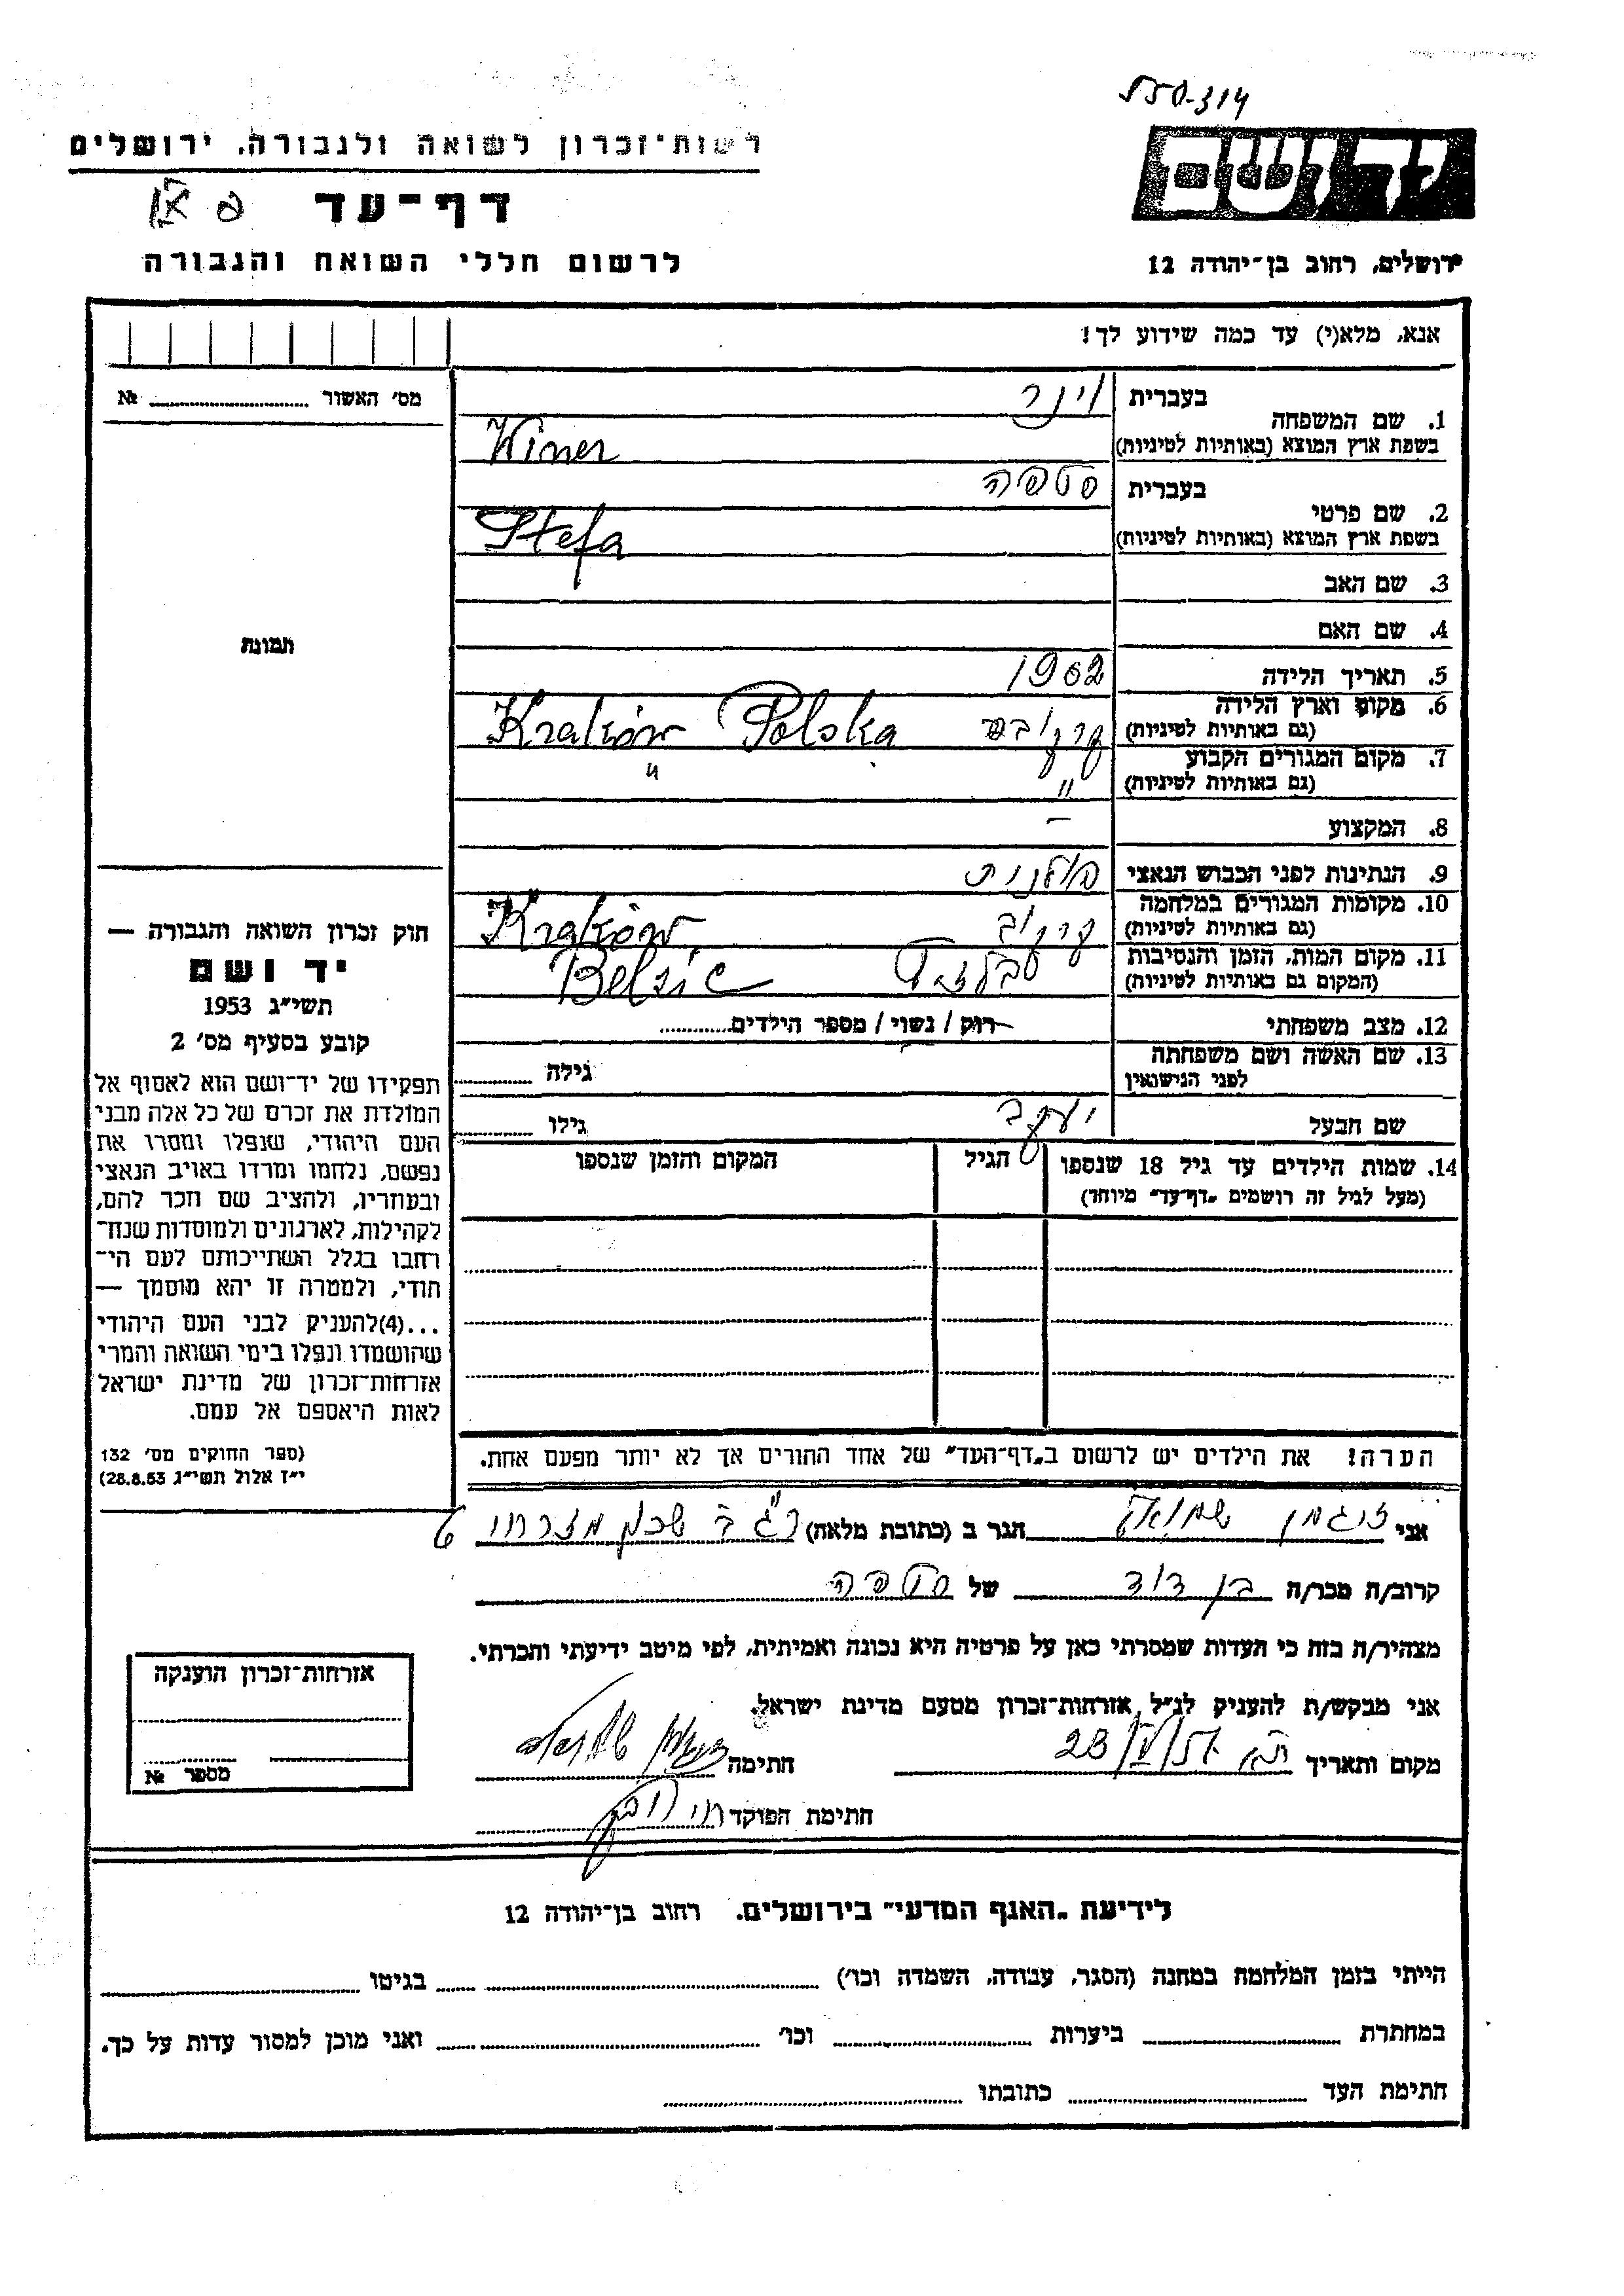 550-314
רשות־זכרון לשואה ולגבורה. ירושלים
דף־עד
לרשום חללי השואה והגבורה
ירושלים, רחוב בן־יהודה 12
אנא, מלא(י) עד כמה שידוע לך!
מס' האשור № 
בעברית וינר
1. שם המשפחה
בשפת ארץ המוצא (באותיות לטיניות) Winer
בעברית סטפה
2. שם פרטי
בשפת ארץ המוצא (באותיות לטיניות) Stefa
3. שם האב
4. שם האם
5. תאריך הלידה 1902
6. מקום וארץ הלידה
(גם באותיות לטיניות) Kraków Polska
7. מקום המגורים הקבוע "
(גם באותיות לטיניות) "
8. המקצוע –
9. הנתינות לפני הכבוש הנאצי פולנית
10. מקומות המגורים במלחמה
(גם באותיות לטיניות) קרקוב Kraków
11. מקום המות, הזמן והנסיבות
(המקום גם באותיות לטיניות) Belzic
12. מצב משפחתי רוק / נשוי / מספר הילדים
13. שם האשה ושם משפחתה
לפני הנישואין גילה
שם הבעל יעקב גילו
14. שמות הילדים עד גיל 18 שנספו הגיל המקום והזמן שנספו
(מעל לגיל זה רושמים "דף־עד" מיוחד)
הערה! את הילדים יש לרשום ב"דף־העד" של אחד ההורים אך לא יותר מפעם אחת.
תמונה
חוק זכרון השואה והגבורה —
יד ושם
תשי"ג 1953
קובע בסעיף מס' 2
תפקידו של יד־ושם הוא לאסוף אל
המולדת את זכרם של כל אלה מבני
העם היהודי, שנפלו ומסרו את
נפשם, נלחמו ומרדו באויב הנאצי
ובעוזריו, ולהציב שם וזכר להם,
לקהילות, לארגונים ולמוסדות שנח־
רבו בגלל השתייכותם לעם הי־
הודי, ולמטרה זו יהא מוסמך —
...(4) להעניק לבני העם היהודי
שהושמדו ונפלו בימי השואה והמרי
אזרחות־זכרון של מדינת ישראל
לאות היאספם אל עמם.
(ספר החוקים מס' 132
י"ז אלול תשי"ג 28.8.53)
אני זיגמן שמואל הגר ב (כתובת מלאה) ר"ג
קרוב/ה מכר/ה בן דוד של סטפה
מצהיר/ה בזה כי העדות שמסרתי כאן על פרטיה היא נכונה ואמיתית, לפי מיטב ידיעתי והכרתי.
אני מבקש/ת להעניק לנ"ל אזרחות־זכרון מטעם מדינת ישראל.
מקום ותאריך חתימה
חתימת הפוקד
אזרחות־זכרון הוענקה
מספר №
לידיעת "האגף המדעי" בירושלים. רחוב בן־יהודה 12
הייתי בזמן המלחמה במחנה (הסגר, עבודה, השמדה וכו') בגיטו
במחתרת ביערות וכו' ואני מוכן למסור עדות על כך.
חתימת העד כתובתו